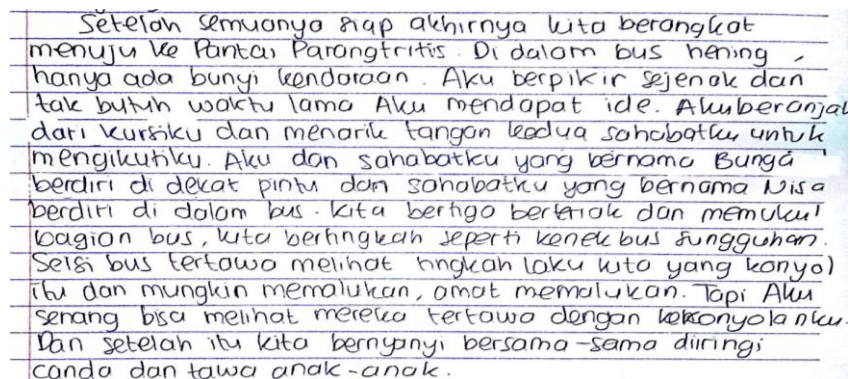 Setelah semuanya siap akhirnya kita berangkat
menuju ke Pantai Parangtritis. Di dalam bus hening,
hanya ada bunyi kendaraan. Aku berpikir sejenak dan
tak butuh waktu lama Aku mendapat ide. Aku beranjak
dari kursiku dan menarik tangan kedua sahabatku untuk
mengikutiku. Aku dan sahabatku yang bernama Bunga
berdiri di dekat pintu dan sahabatku yang bernama Nisa
berdiri di dalam bus. Kita bertiga berteriak dan memukul
bagian bus, kita bertingkah seperti kenek bus sungguhan.
Seisi bus tertawa melihat tingkah laku kita yang konyol
itu dan mungkin memalukan, amat memalukan. Tapi Aku
senang bisa melihat mereka tertawa dengan kekonyolanku.
Dan setelah itu kita bernyanyi bersama-sama diiringi
canda dan tawa anak-anak.